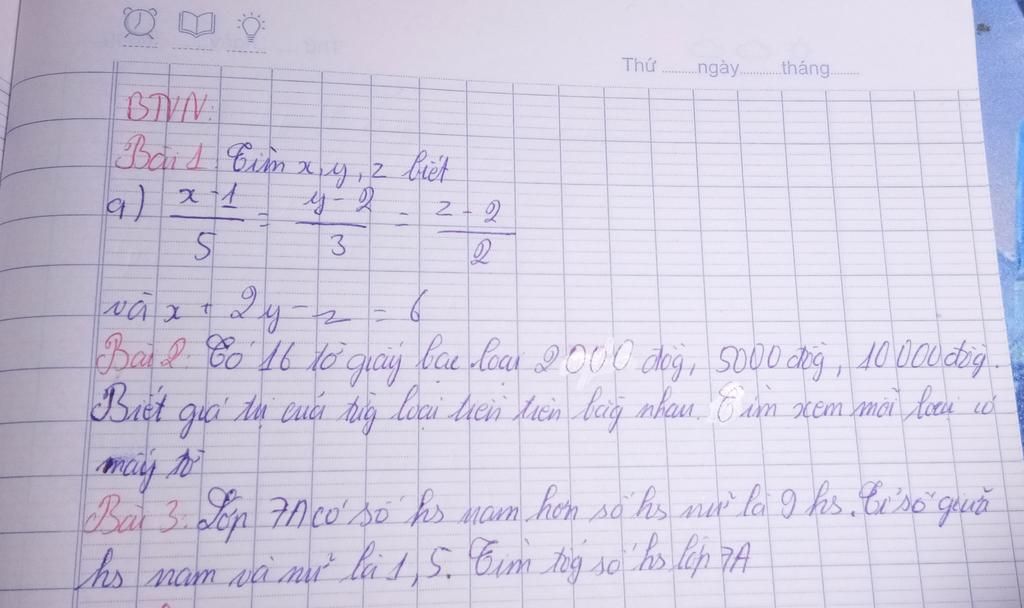 Thứ ........ngày.........tháng.......
BTVN:
Bài 1. Tìm x, y, z biết
a) \frac{x-1}{5} = \frac{y-2}{3} = \frac{z-2}{2}
và x + 2y - z = 6
Bài 2: Có 16 tờ giấy bạc loại 2000 đồg, 5000 đồg, 10000 đồg.
Biết giá trị của từg loại tiền trên bằg nhau. Tìm xem mỗi loại có
mấy tờ
Bài 3: Lớp 7A có số hs nam hơn số hs nữ là 9 hs. Tỉ số giữa
hs nam và nữ là 1,5. Tìm tổg số hs lớp 7A